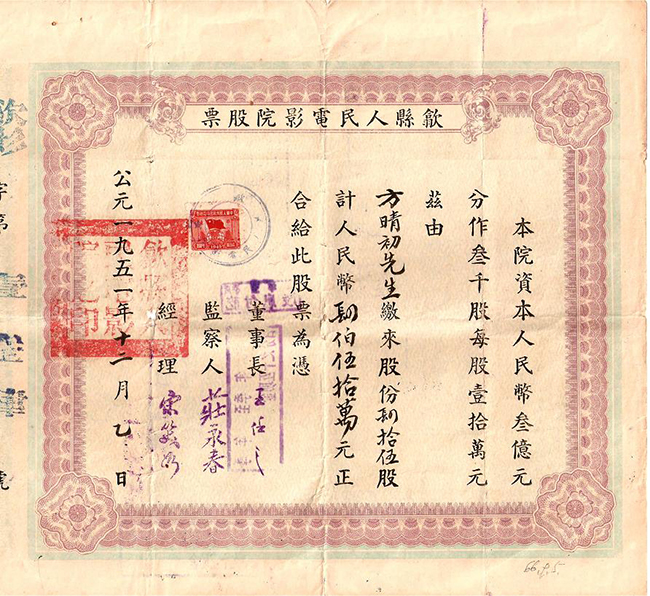 歙縣人民電影院股票
本院資本人民幣叁億元
分作叁千股每股壹拾萬元
茲由
方晴初先生繳來股份肆拾伍股
計人民幣肆伯伍拾萬元正
合給此股票為憑
董事長 王任之
監察人 莊承春
經理 宋
公元一九五一年十二月乙日
字第
號